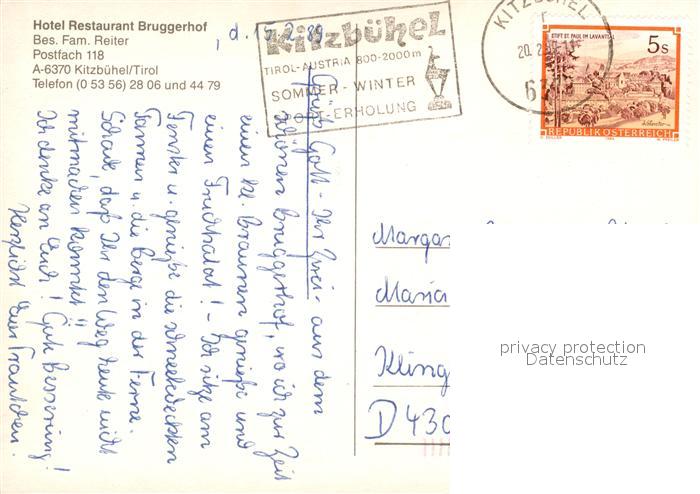 Hotel Restaurant Bruggerhof
Bes. Fam. Reiter
Postfach 118
A-6370 Kitzbühel/Tirol
Telefon (0 53 56) 28 06 und 44 79
, d. 15.2.89
Kitzbühel
TIROL-AUSTRIA 800-2000m
SOMMER - WINTER
ERHOLUNG
KITZBÜHEL
20.2.89
STIFT ST. PAUL IM LAVANTTAL
5s
REPUBLIK ÖSTERREICH
Grüss Gott - Ihr Zwei - aus dem
schönen Bruggerhof, wo ich zur Zeit
einen kl. Braunen genieße und
einen Fruchtsalat! - Ich sitze am
Fenster u. genieße die schneebedeckten
Tannen u. die Berge in der Ferne.
Schade, daß Ihr den Weg heute nicht
mitmachen könnt!!
Ich denke an Euch! Gute Besserung!
Herzlichst Euer Trautchen.
Margar
Maria
Kling
D 430
privacy protection
Datenschutz